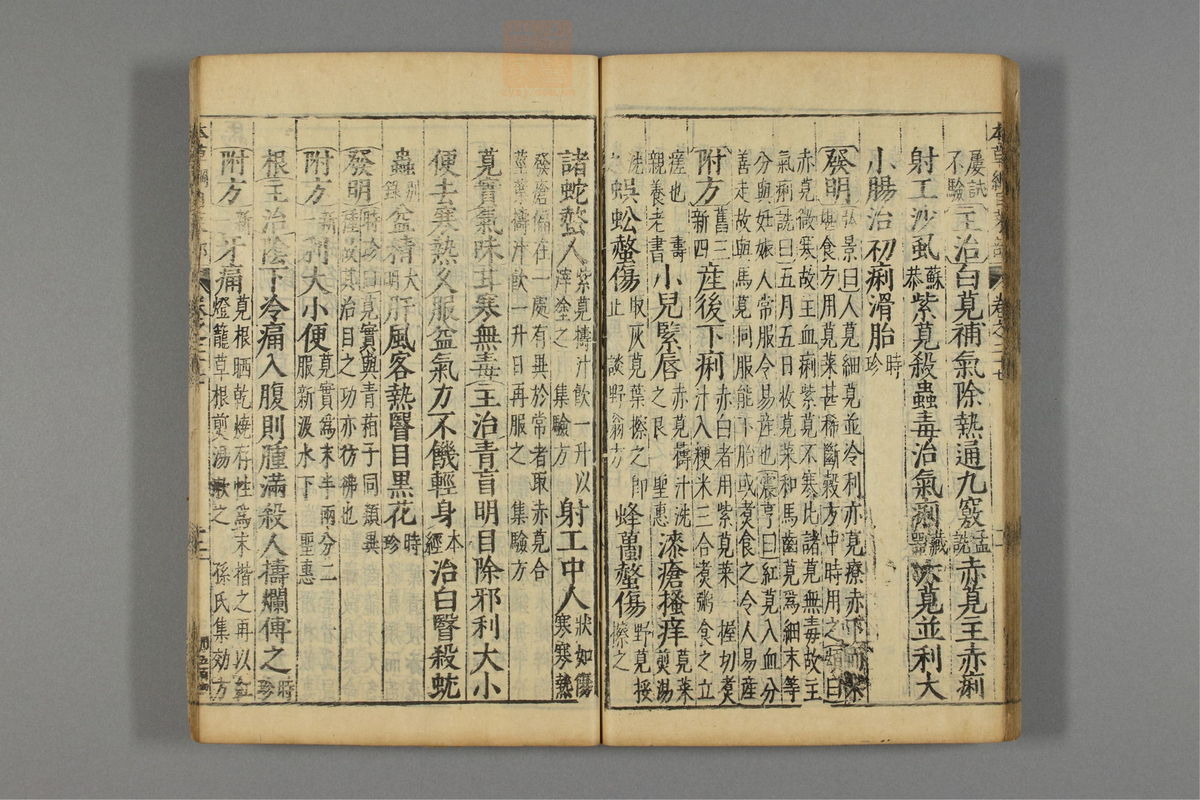 屢試不驗主治白莧補氣除熱通九竅孟詵赤莧主赤痢
射工沙虱蘇恭紫莧殺蟲毒治氣痢藏器六莧並利大
小腸治初痢滑胎時珍
發明弘景曰人莧細莧並冷利赤莧療赤下而不
堪食方用莧菜甚稀斷穀方中時用之頌曰
赤莧微寒故主血痢紫莧不寒比諸莧無毒故主
氣痢詵曰五月五日收莧菜和馬齒莧爲細末等
分與妊娠人常服令易産也震亨曰紅莧入血分
善走故與馬莧同服能下胎或煮食之令人易産
附方舊三新四産後下痢赤白者用紫莧菜一握切煮汁入粳米三合煮粥食之立
瘥也壽親養老書小兒緊唇赤莧擣汁洗之良聖惠漆瘡搔痒莧菜煎湯
洗之蜈蚣螫傷取灰莧葉擦之即止談野翁方蜂蠆螫傷野莧挼擦之
諸蛇螫人紫莧擣汁飲一升以滓塗之集驗方射工中人狀如傷寒寒熱
發瘡偏在一處有異於常者取赤莧合
莖葉擣汁飲一升日再服之集驗方
莧實氣味甘寒無毒主治青盲明目除邪利大小
便去寒熱久服益氣力不饑輕身本經治白翳殺蚘
蟲別錄益精大明肝風客熱翳目黑花時珍
發明時珍曰莧實與青葙子同類異
種故其治目之功亦彷彿也
附方新一利大小便莧實爲末半兩分二服新汲水下聖惠
根主治陰下冷痛入腹則腫滿殺人擣爛傅之時珍
附方新一牙痛莧根晒乾燒存性爲末楷之再以紅燈籠草根煎湯漱之孫氏集効方